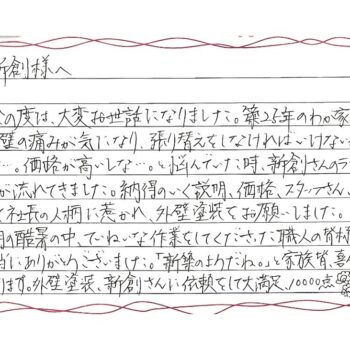 新創様へ
の度は、大変お世話になりました。築25年のわが家
壁の痛みが気になり、張り替えをしなければいけない
…。価格が高いしな…。と悩んでいた時、新創さんのラ
が流れてきました。納得のいく説明、価格、スタッフさん、
く社長の人柄に惹かれ、外壁塗装をお願いしました。
月の酷暑の中、てーねいな作業をしてくださった職人の皆様
当にありがとうございました。「新築のようだね。」と家族皆、喜
ます。外壁塗装、新創さんに依頼をして大満足、10000点